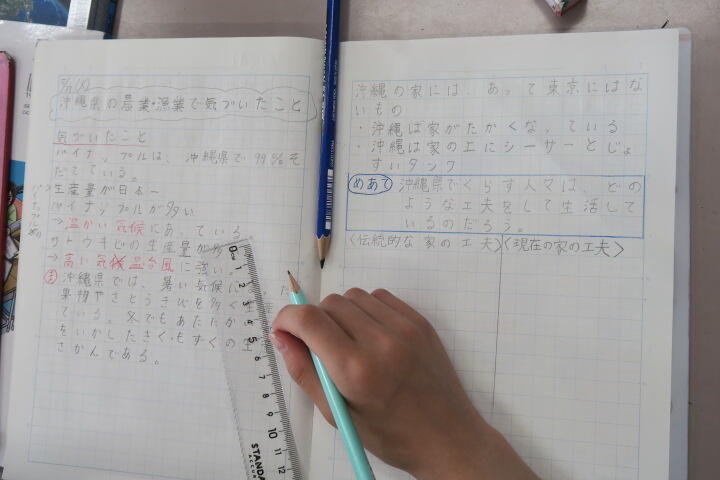 沖縄県の農業・漁業で気づいたこと
気づいたこと
パイナップルは、沖縄県で99%そ
だてている。
生産量が日本一
パイナップルが多い
→温かい気候にあっている。
サトウキビの生産量が多
→高い気温台風に強い
ま 沖縄県では、暑い気候に
果物やさとうきびを多く生
ている。冬でもあたたか
をいかしたきく・もずくの生
さかんである。
沖縄の家には、あって東京にはな
いもの
・沖縄は家がたかくなっている
・沖縄は家の上にシーサーとじょ
すいタンク
めあて 沖縄県でくらす人々は、どの
ような工夫をして生活して
いるのだろう。
<伝統的な家の工夫> <現在の家の工夫>
0 1 2 3 4 5 6 7 8 9 10 11 12
STANDA